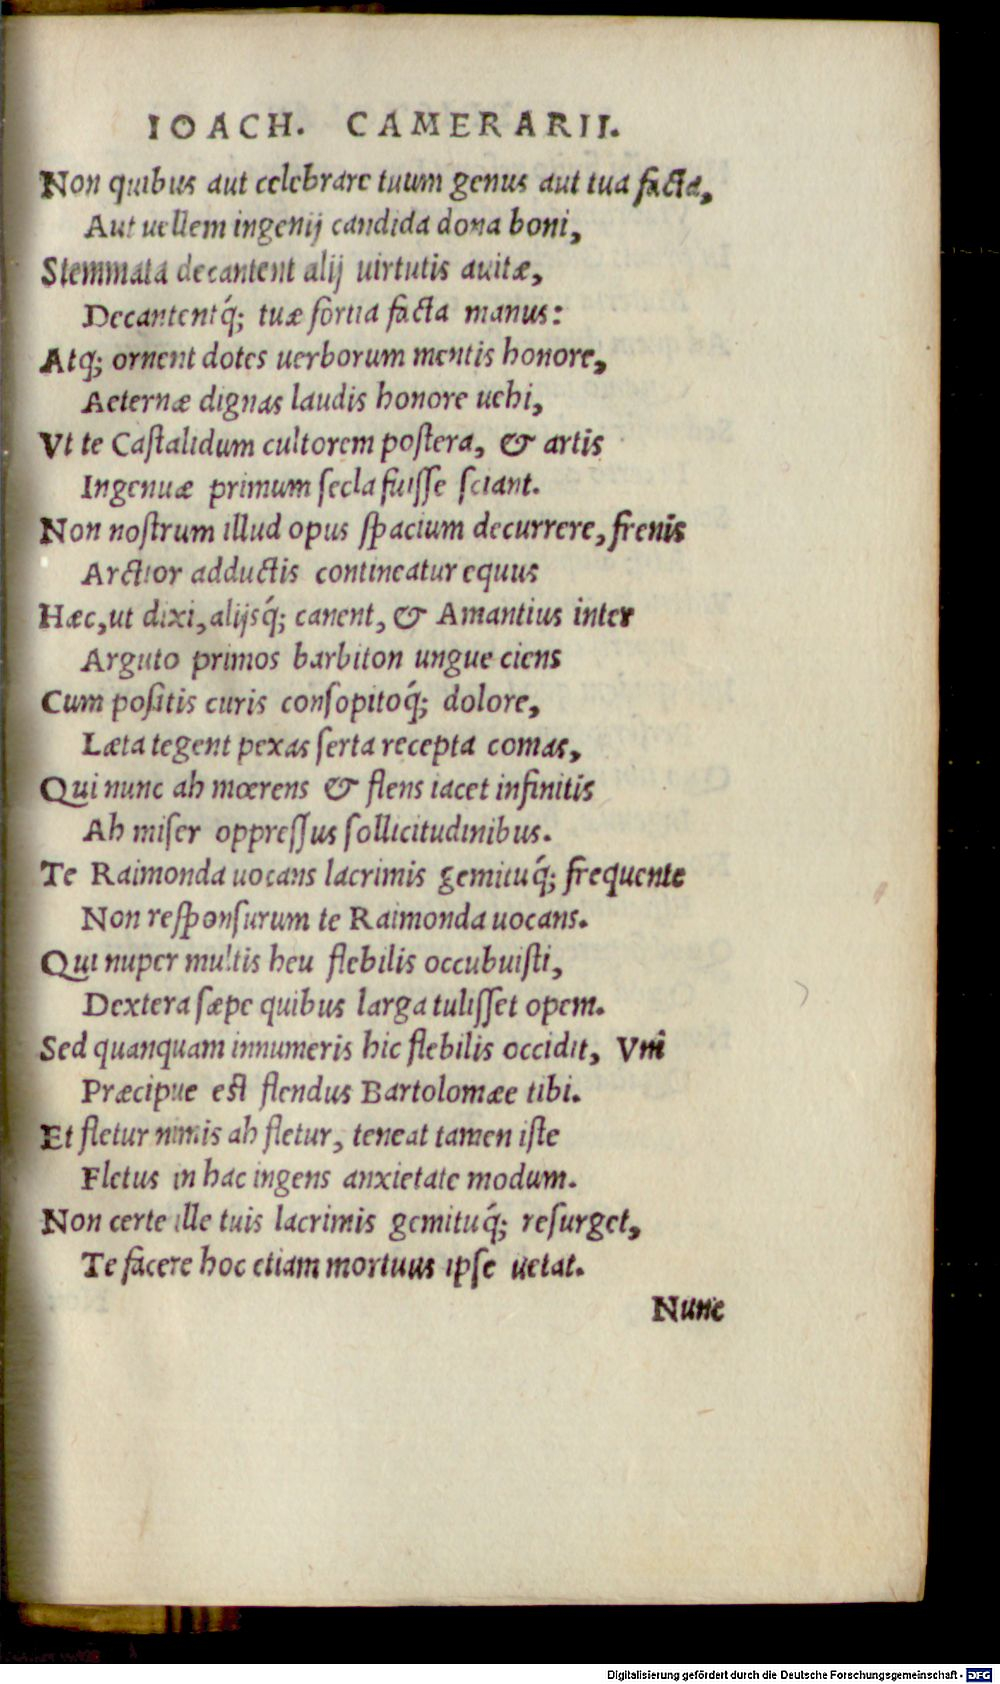 IOACH. CAMERARII.
Non quibus aut celebrare tuum genus aut tua facta,
Aut uellem ingenij candida dona boni,
Stemmata decantent alij uirtutis auitæ,
Decantentq́; tuæ fortia facta manus:
Atq; ornent dotes uerborum mentis honore,
Aeternæ dignas laudis honore uehi,
Vt te Castalidum cultorem postera, & artis
Ingenuæ primum secla fuisse sciant.
Non nostrum illud opus spacium decurrere, frenis
Arctior adductis contineatur equus
Hæc, ut dixi, alijsq́; canent, & Amantius inter
Arguto primos barbiton ungue ciens
Cum positis curis consopitoq́; dolore,
Læta tegent pexas serta recepta comas,
Qui nunc ah mœrens & flens iacet infinitis
Ah miser oppressus sollicitudinibus.
Te Raimonda uocans lacrimis gemituq́; frequente
Non responsurum te Raimonda uocans.
Qui nuper multis heu flebilis occubuisti,
Dextera sæpe quibus larga tulisset opem.
Sed quanquam innumeris hic flebilis occidit, Vni
Præcipue est flendus Bartolomæe tibi.
Et fletur nimis ah fletur, teneat tamen iste
Fletus in hac ingens anxietate modum.
Non certe ille tuis lacrimis gemituq́; resurget,
Te facere hoc etiam mortuus ipse uetat.
Nunc
Digitalisierung gefördert durch die Deutsche Forschungsgemeinschaft - DFG